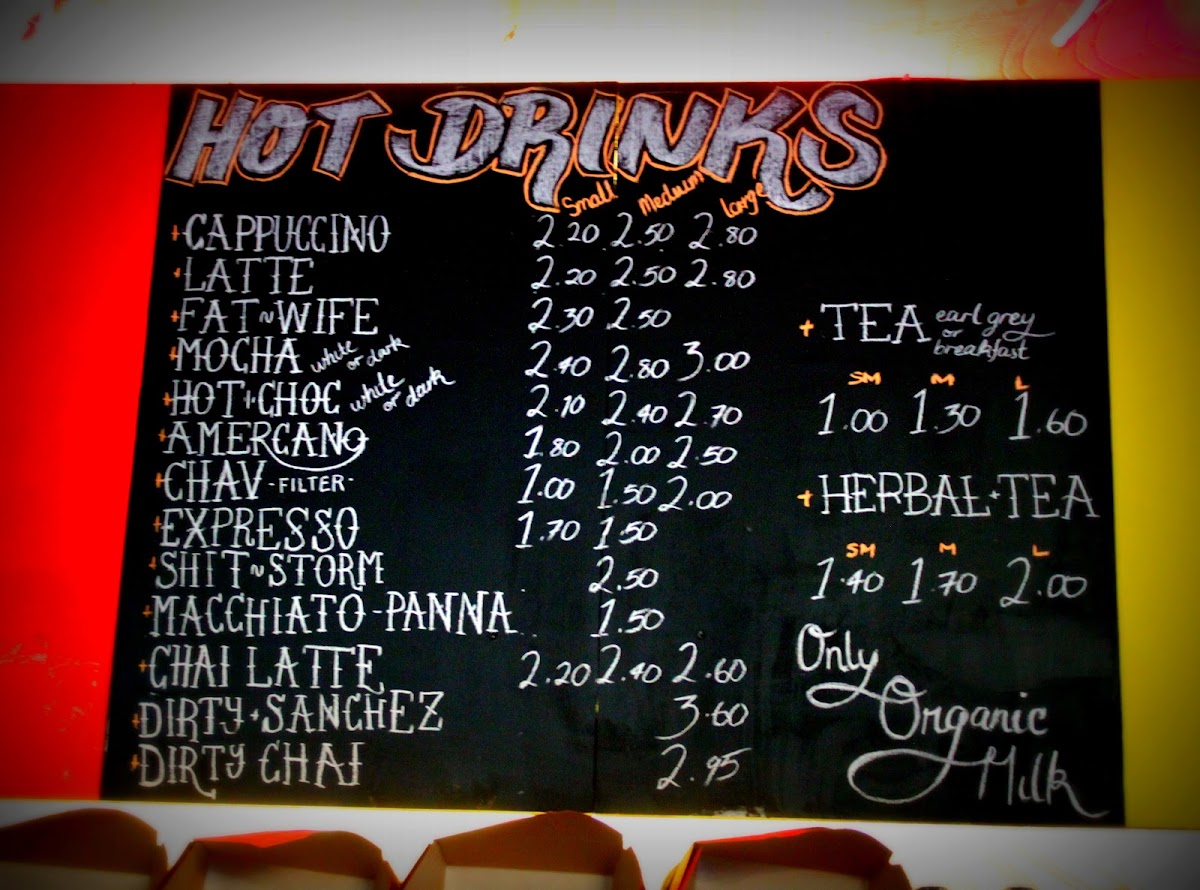 HOT DRINKS
Small Medium large
+CAPPUCCINO 2.20 2.50 2.80
+LATTE 2.20 2.50 2.80
+FAT~WIFE 2.30 2.50
+MOCHA white or dark 2.40 2.80 3.00
+HOT+CHOC white or dark 2.10 2.40 2.70
+AMERCANO 1.80 2.00 2.50
+CHAV -FILTER- 1.00 1.50 2.00
+EXPRESSO 1.70 1.50
+SHIT~STORM 2.50
+MACCHIATO-PANNA 1.50
+CHAI LATTE 2.20 2.40 2.60
+DIRTY+SANCHEZ 3.60
+DIRTY CHAI 2.95
+ TEA earl grey or breakfast
SM M L
1.00 1.30 1.60
+HERBAL+TEA
SM M L
1.40 1.70 2.00
Only
Organic
Milk